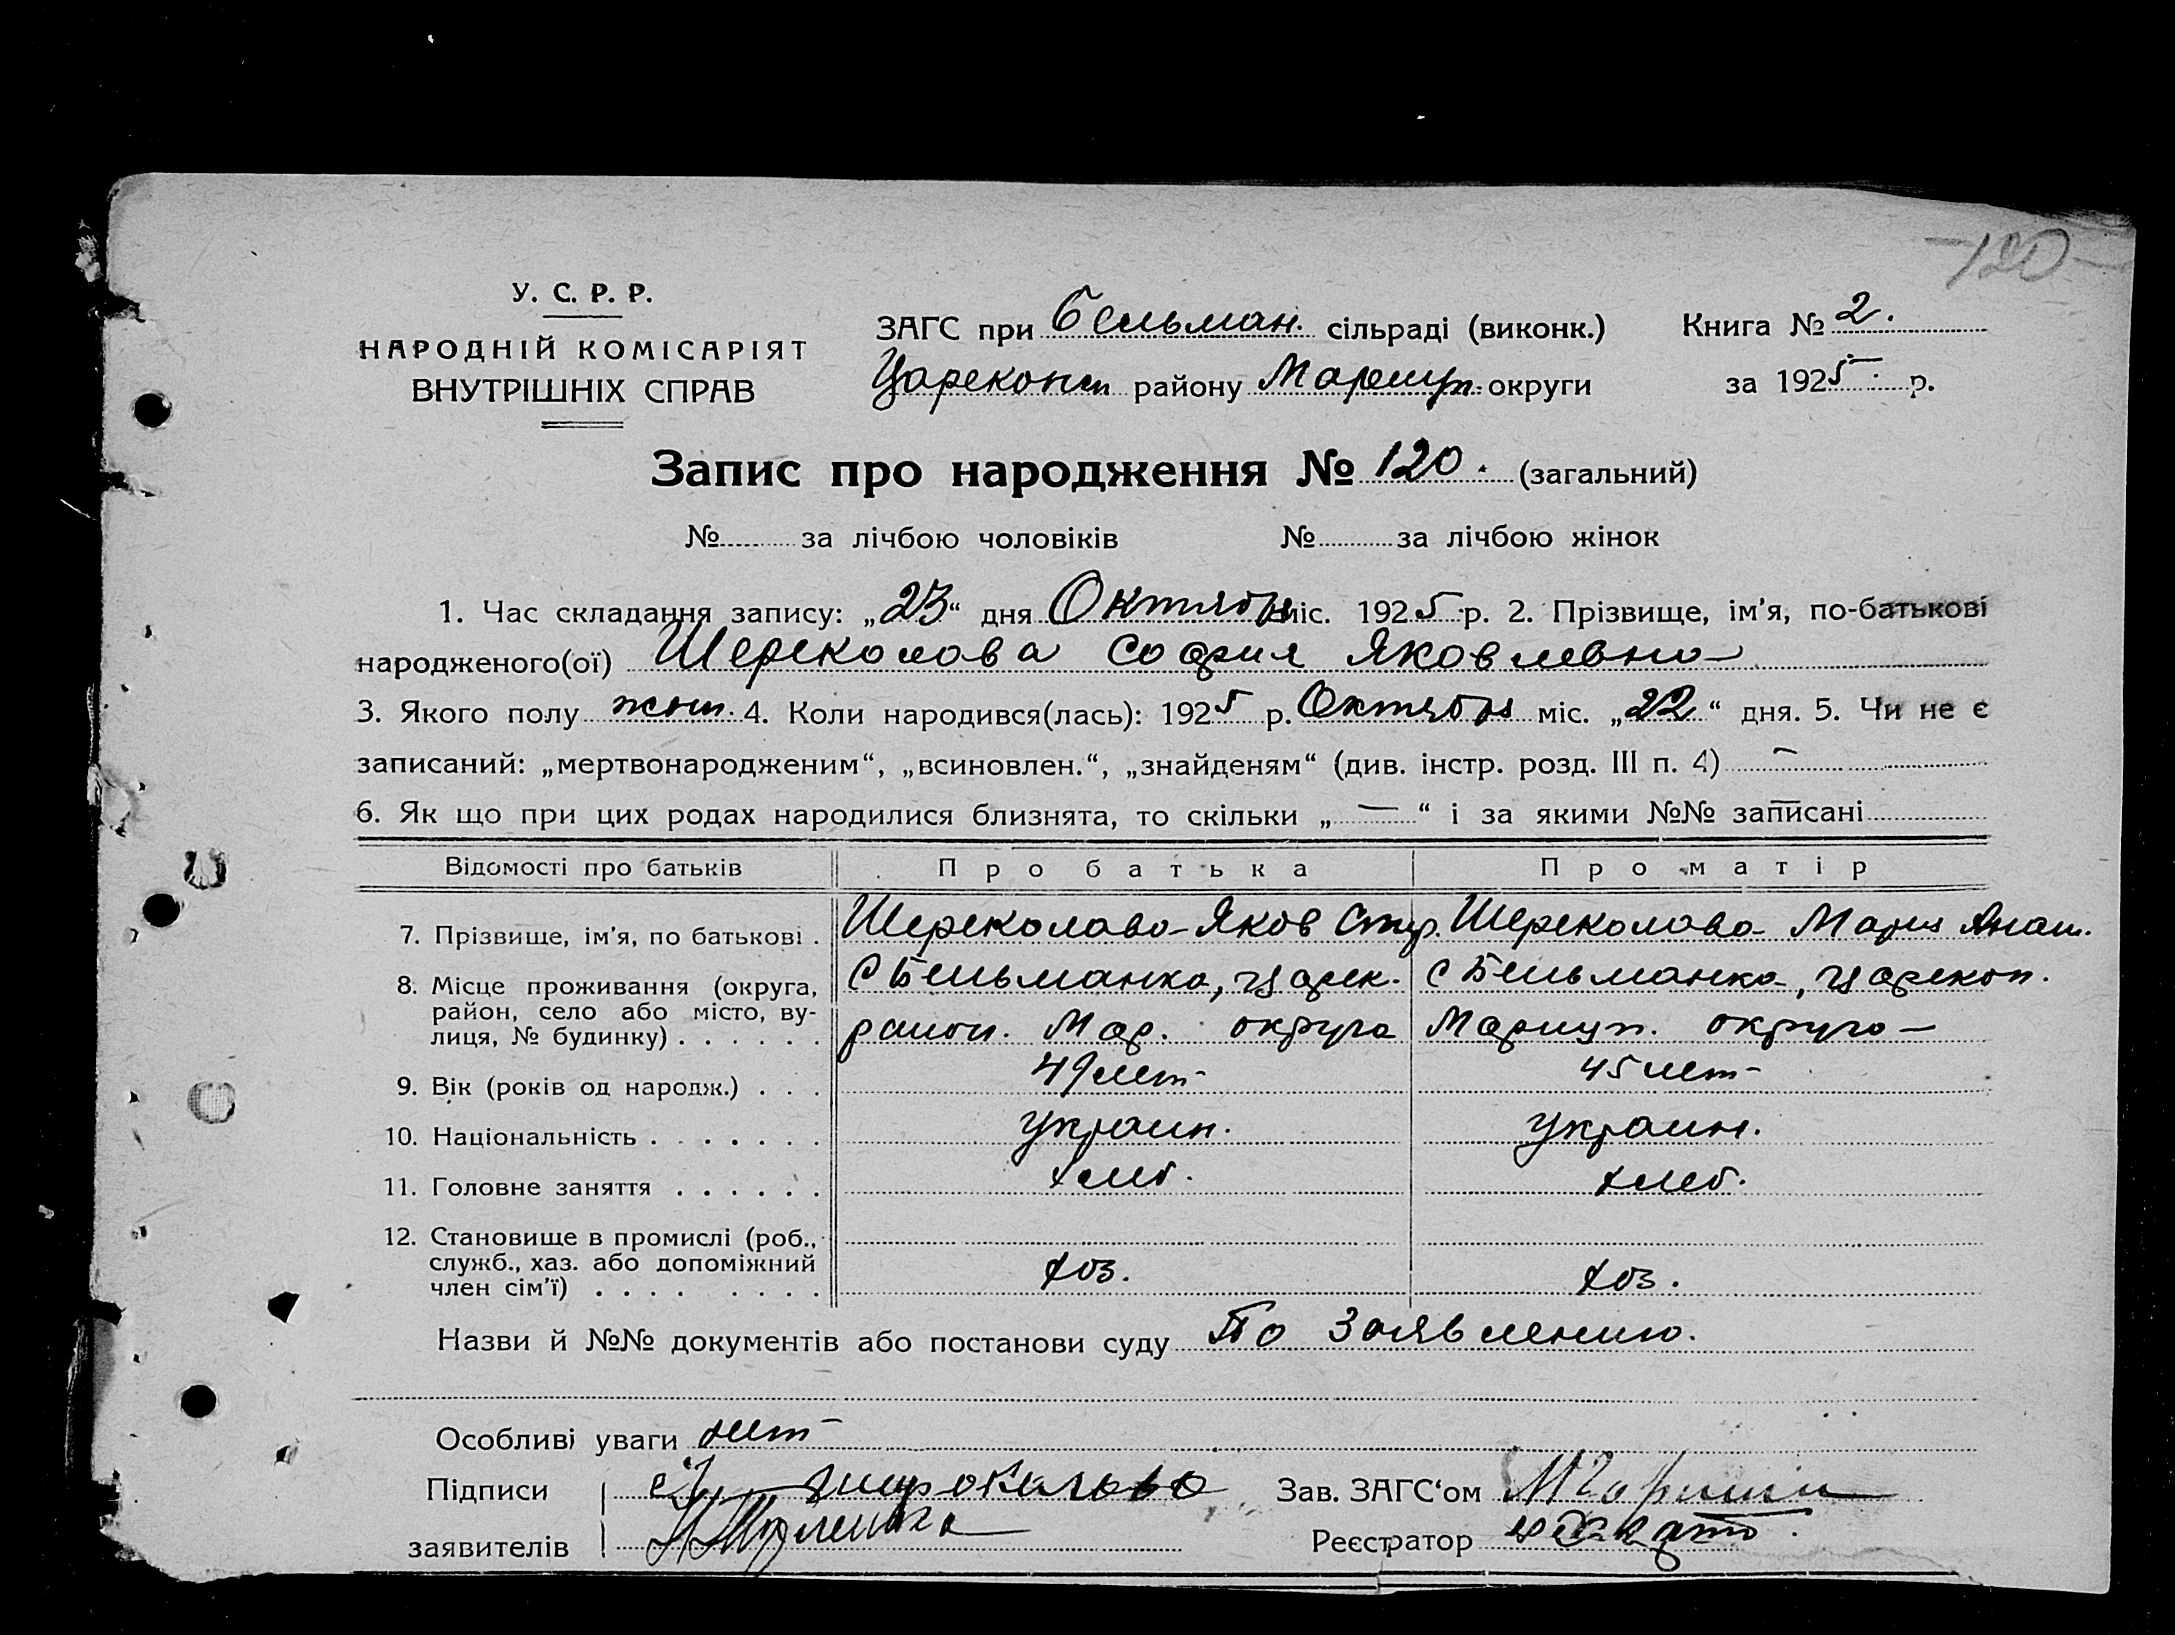 -120-
У. С. Р. Р.
НАРОДНІЙ КОМІСАРІЯТ
ВНУТРІШНІХ СПРАВ
ЗАГС при Бельман. сільраді (виконк.) Книга № 2.
Цареконст району Мариуп. округи за 1925 р.
Запис про народження № 120. (загальний)
№ за лічбою чоловіків № за лічбою жінок
1. Час складання запису: „23“ дня Октября міс. 1925 р. 2. Прізвище, ім'я, по-батькові
народженого(ої) Шереколова София Яковлевна
3. Якого полу жен. 4. Коли народився(лась): 1925 р. Октября міс. „22“ дня. 5. Чи не є
записаний: „мертвонародженим“, „всиновлен.“, „знайденям“ (див. інстр. розд. III п. 4) —
6. Як що при цих родах народилися близнята, то скільки „—“ і за якими №№ записані —
Відомості про батьків Про батька Про матір
7. Прізвище, ім'я, по батькові . Шереколова Яков Шереколова Мария
8. Місце проживання (округа, район, село або місто, вулиця, № будинку) . . . . . . С Бельманка, Царек. С Бельманка, Царекон.
район. Мар. округа Мариуп. округа
9. Вік (років од народж.) . . . 49 лет 45 лет
10. Національність . . . . . . . украин. украин.
11. Головне заняття . . . . . . хлеб. хлеб.
12. Становище в промислі (роб., служб., хаз. або допоміжний член сім'ї) . . . . . . . . хоз. хоз.
Назви й №№ документів або постанови суду По Заявлению.
Особливі уваги нет
Підписи Зав. ЗАГС‘ом
заявителів Реєстратор